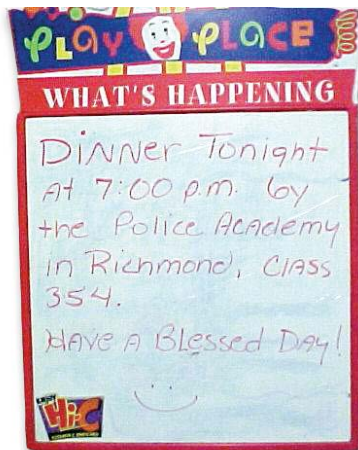 PLAY PLACE
WHAT'S HAPPENING
Dinner Tonight
At 7:00 p.m. by
the Police Academy
in Richmond, Class
354.
Have A Blessed Day!
Hi-C